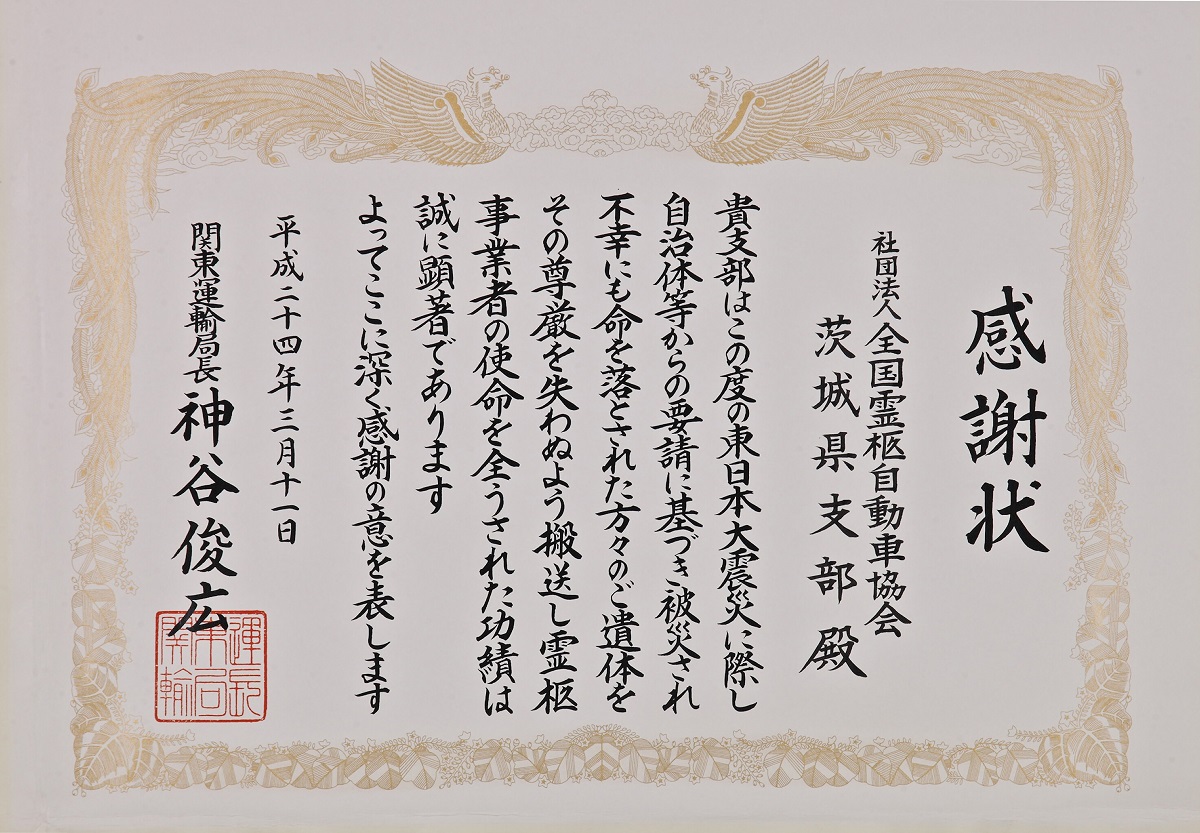 感謝状
社団法人全国霊柩自動車協会
茨城県支部殿
貴支部はこの度の東日本大震災に際し
自治体等からの要請に基づき被災され
不幸にも命を落とされた方々のご遺体を
その尊厳を失わぬよう搬送し霊柩
事業者の使命を全うされた功績は
誠に顕著であります
よってここに深く感謝の意を表します
平成二十四年三月十一日
関東運輸局長 神谷俊広